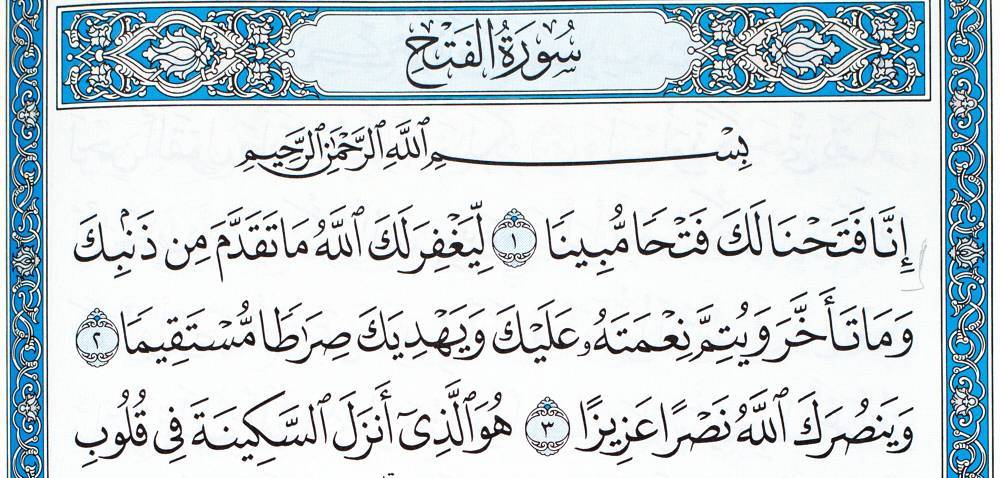 سُورَةُ الفَتْحِ
بِسْمِ ٱللَّهِ ٱلرَّحْمَٰنِ ٱلرَّحِيمِ
إِنَّا فَتَحْنَا لَكَ فَتْحًا مُّبِينًا ١ لِّيَغْفِرَ لَكَ ٱللَّهُ مَا تَقَدَّمَ مِن ذَنۢبِكَ
وَمَا تَأَخَّرَ وَيُتِمَّ نِعْمَتَهُۥ عَلَيْكَ وَيَهْدِيَكَ صِرَٰطًا مُّسْتَقِيمًا ٢
وَيَنصُرَكَ ٱللَّهُ نَصْرًا عَزِيزًا ٣ هُوَ ٱلَّذِىٓ أَنزَلَ ٱلسَّكِينَةَ فِى قُلُوبِ